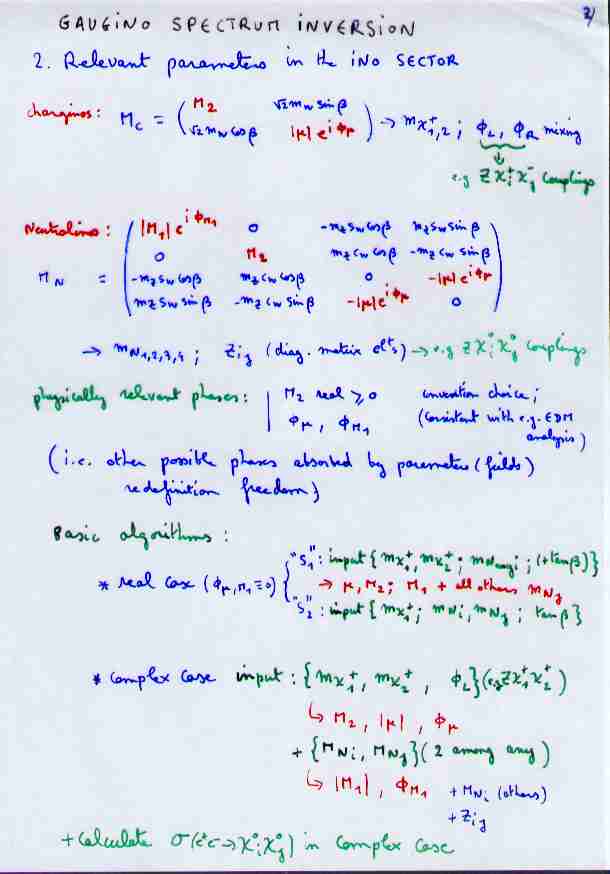 2/
GAUGINO SPECTRUM INVERSION
2. Relevant parameters in the INO SECTOR
charginos: M_C = ( M_2 √2 m_W sin β
√2 m_W cos β |μ| e^{iΦ_μ} ) → m_{χ^+_{1,2}} ; Φ_L, Φ_R mixing
e.g Z χ^+_i χ^-_j couplings
Neutralinos: ( |M_1| e^{iΦ_{M_1}} 0 -m_Z s_W cos β m_Z s_W sin β
0 M_2 m_Z c_W cos β -m_Z c_W sin β
M_N = -m_Z s_W cos β m_Z c_W cos β 0 -|μ| e^{iΦ_μ}
m_Z s_W sin β -m_Z c_W sin β -|μ| e^{iΦ_μ} 0 )
→ m_{N_{1,2,3,4}} ; Z_{ij} (diag. matrix elts) → e.g Z χ^0_i χ^0_j couplings
physically relevant phases: | M_2 real ⩾ 0 convention choice;
Φ_μ, Φ_{M_1} (consistent with e.g. EDM
analysis)
(i.e. other possible phases absorbed by parameters (fields)
redefinition freedom)
Basic algorithms:
"S_1": input {m_{χ^+_1}, m_{χ^+_2} ; m_{N_i} ; (+tan β)}
* real case (Φ_{μ,M_1} ≡ 0) { → μ, M_2 ; M_1 + all others m_{N_j}
"S_2": input {m_{χ^+_1} ; m_{N_i}, m_{N_j} ; tan β}
* complex case input: {m_{χ^+_1}, m_{χ^+_2}, Φ_L} (e.g Z χ^+_1 χ^+_2)
↳ M_2, |μ|, Φ_μ
+ {M_{N_i}, M_{N_j}} (2 among any)
↳ |M_1|, Φ_{M_1} + M_{N_i} (others)
+ Z_{ij}
+ calculate σ(e^+e^- → χ^0_i χ^0_j) in complex case